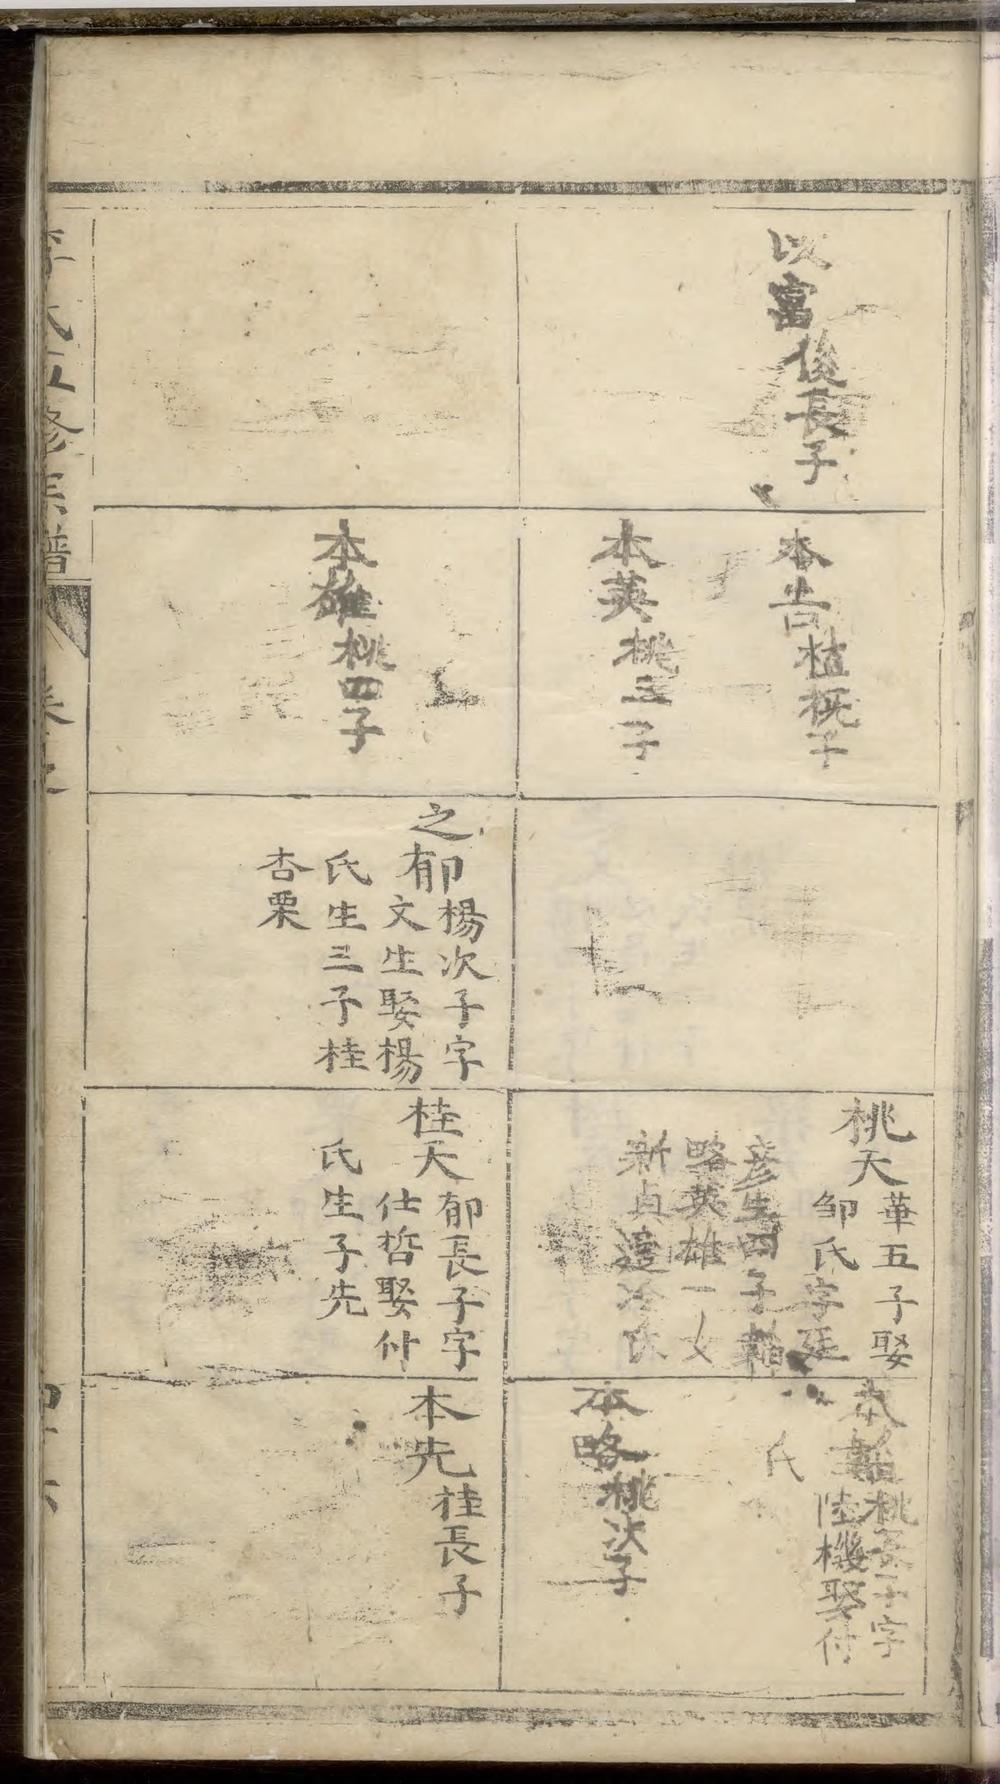 以富後長子
本吉植撫子
本英桃三子
本雄桃四子
之郁楊次子字
文生娶楊
氏生三子桂
杏栗
桃天華五子娶
鄒氏字廷
彥生四子韜
略英雄一女
新貞適冷氏
桂天郁長子字
仕哲娶付
氏生子先
本韜桃長子字
陸機娶付
氏
本略桃次子
本先桂長子
李氏五修宗譜